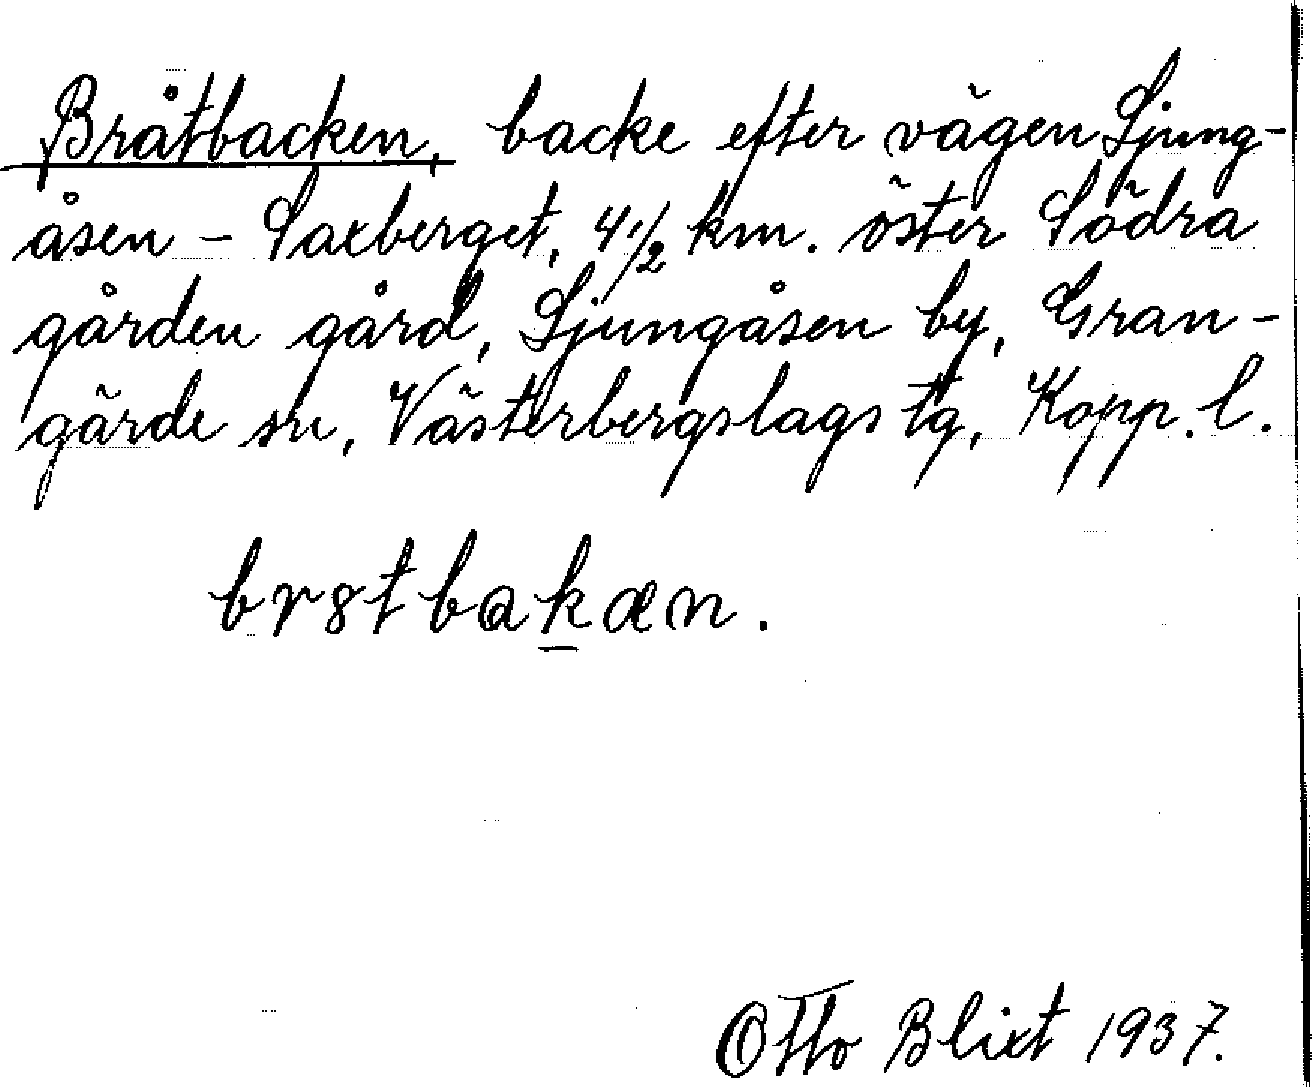 Bråtbacken, backe efter vägen Ljung-
åsen - Saxberget, 4 1/2 km. öster Södra
gården gård, Ljungåsen by, Gran-
gärde sn, Västerbergslags tg, Kopp. l.
br8tbakæn.
Otto Blixt 1937.